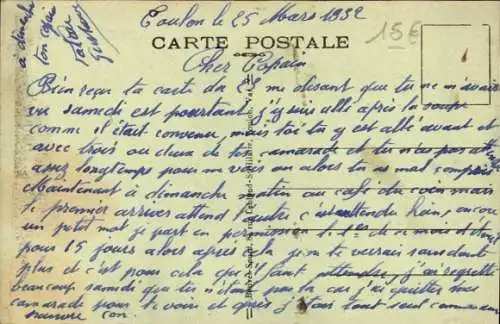 Toulon le 25 Mars 1932
15€
CARTE POSTALE
Cher Copain
Bien reçu la carte du me disant que tu ne m'avais
vu samedi est pourtant j'y suis allé après la soupe
comme il était convenu, mais toi tu y est allé avant et
avec trois ou deux de tes camarade et tu n'as pas
assez longtemps pour me voir ou alors tu as mal compris
Maintenant à dimanche matin au café du coin mais
le premier arriver attend l'autre c'est entendu hein, encore
un petit mot je part en permission le 1er de ce mois
pour 15 jours alors après cela je ne te verrais
plus et c'est pour cela qu'il faut attendre, j'ai regretté
beaucoup samedi que tu n'étais pas la car j'ai quitter mes
camarade pour te voir et après j'étais tout seul
à dimanche
ton copain